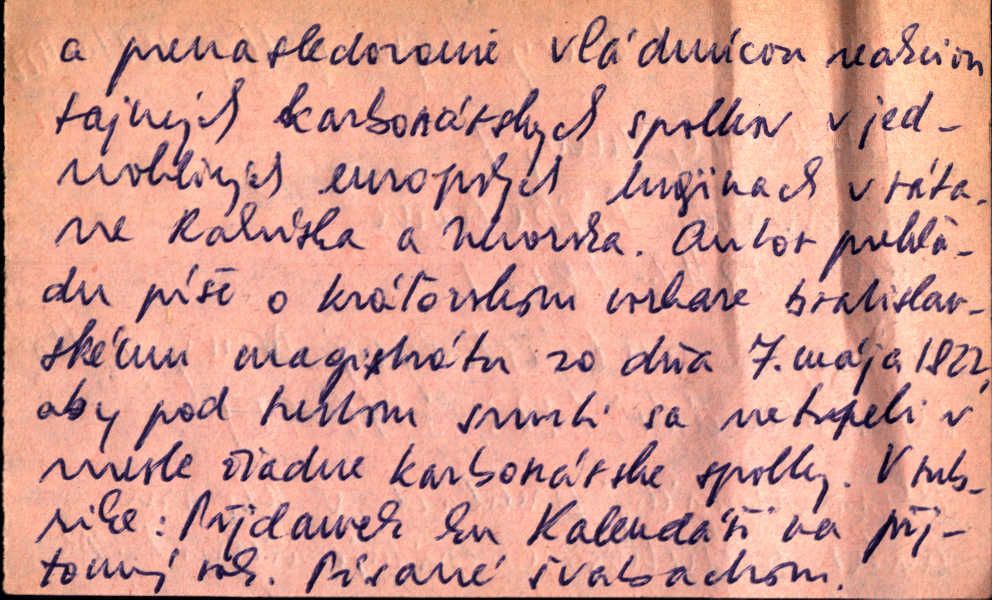 a prenasledovanie vládnúcou reakciou
tajných karbonátskych spolkov v jed-
notlivých europských krajinách vráta-
ne Rakúska a Uhorska. Autor prehľa-
du píše o kráľovskom rozkaze bratislav-
skému magistrátu zo dňa 7. mája 1822,
aby pod trestom smrti sa netrpeli v
meste žiadne karbonátske spolky. V rub-
rike: Přjdawek ku Kalendáři na přj-
tomný rok. Písané švabachom.